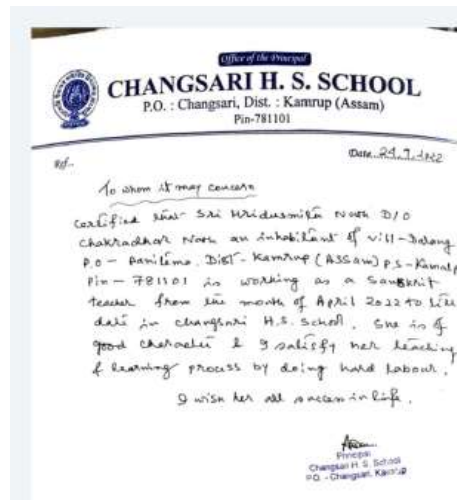 Office of the Principal
CHANGSARI H. S. SCHOOL
P.O. : Changsari, Dist. : Kamrup (Assam)
Pin-781101
Ref..
Date. 24.9.2022
To whom it may concern
Certified that Sri Hridusmita Nath D/O
Chakradhar Nath an inhabitant of vill-Dalang
P.O - Panitema. Dist - Kamrup (Assam) P.S - Kamalp
Pin - 781101 is working as a Sanskrit
teacher from the month of April 2022 to till
date in Changsari H.S. School. She is of
good character & I satisfy her teaching
& learning process by doing hard labour.
I wish her all success in life.
Principal
Changsari H. S. School
P.O. - Changsari, Kamrup